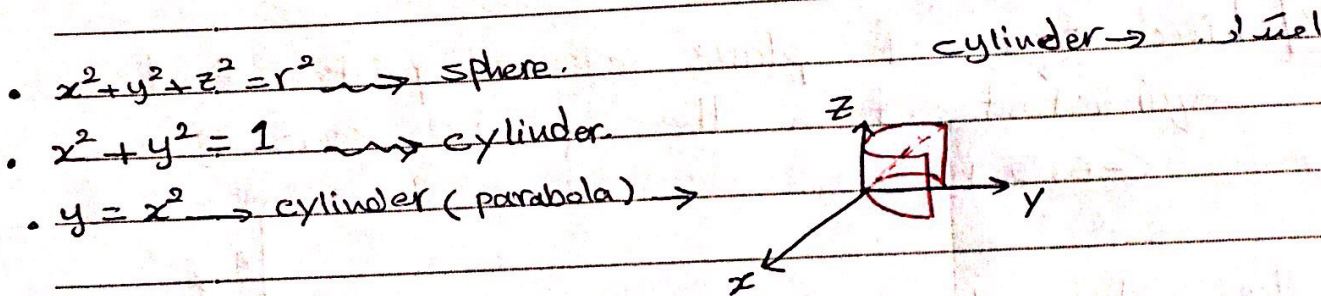 cylinder → امتداد.
• x²+y²+z² = r² ⇝ sphere.
• x² + y² = 1 ⇝ cylinder.
• y = x² → cylinder (parabola) →
z
y
x